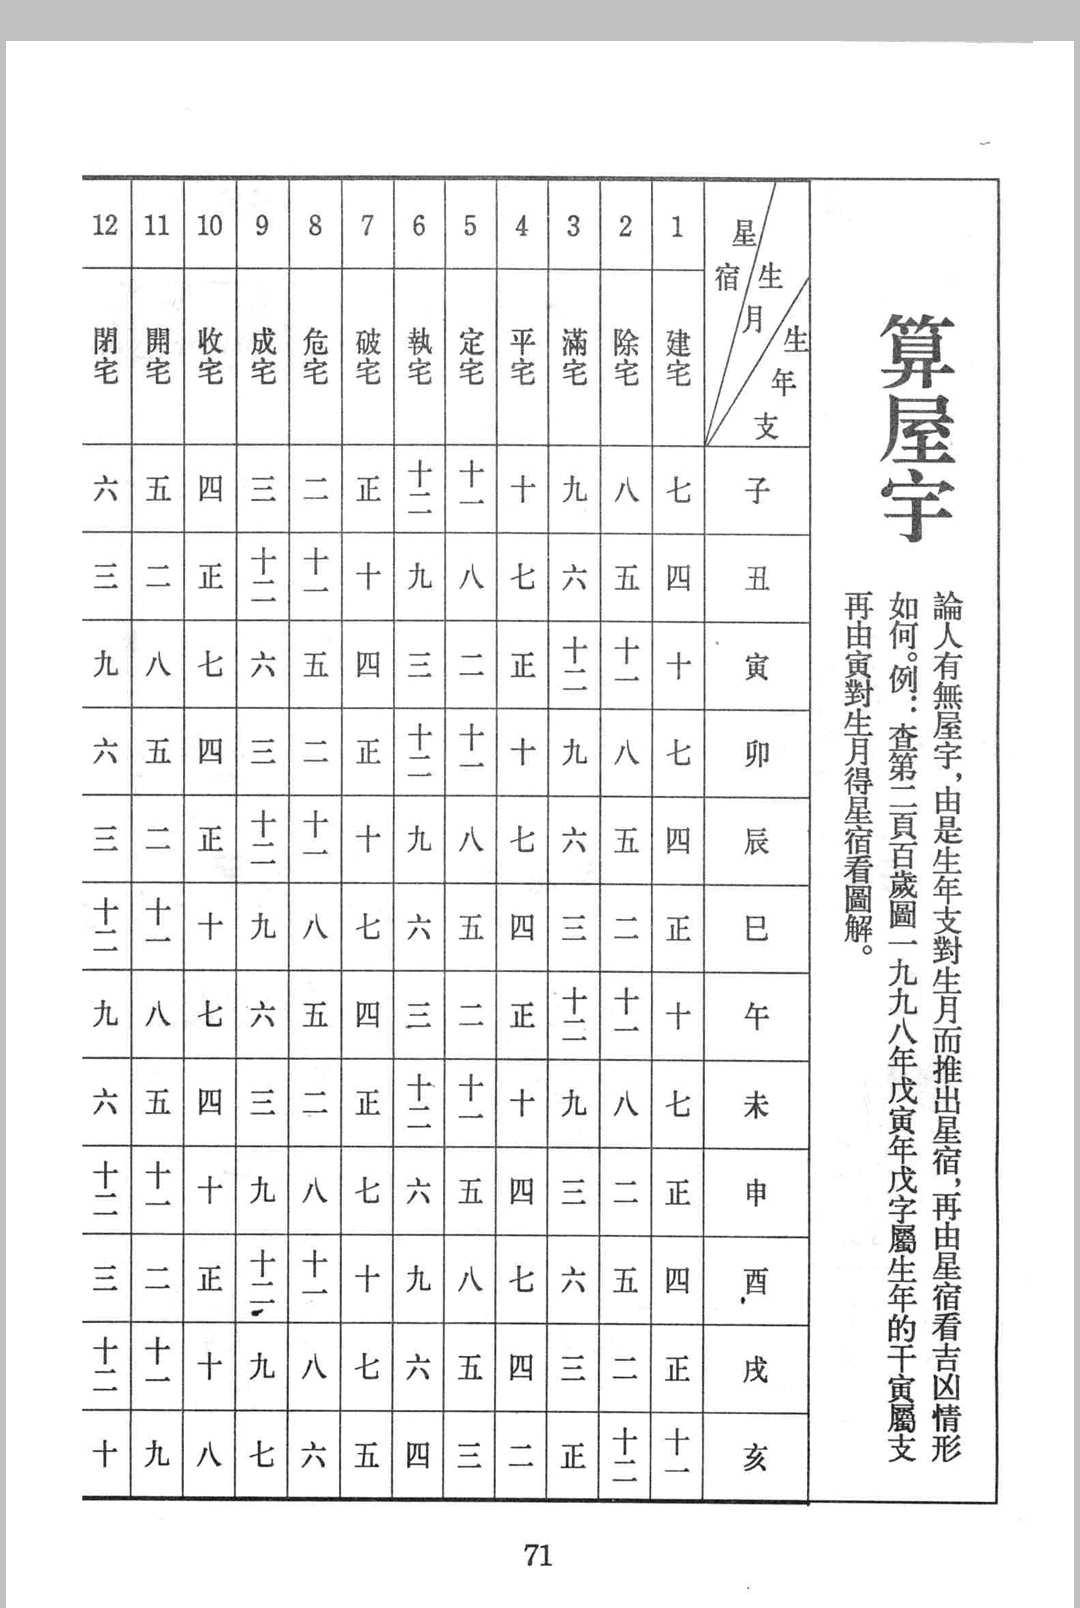 算屋宇
論人有無屋宇，由是生年支對生月而推出星宿，再由星宿看吉凶情形
如何。例：查第二頁百歲圖一九九八年戊寅年戊字屬生年的干寅屬支
再由寅對生月得星宿看圖解。
星宿 生月 生年支 1 2 3 4 5 6 7 8 9 10 11 12
建宅 除宅 滿宅 平宅 定宅 執宅 破宅 危宅 成宅 收宅 開宅 閉宅
子 七 八 九 十 十一 十二 正 二 三 四 五 六
丑 四 五 六 七 八 九 十 十一 十二 正 二 三
寅 十 十一 十二 正 二 三 四 五 六 七 八 九
卯 七 八 九 十 十一 十二 正 二 三 四 五 六
辰 四 五 六 七 八 九 十 十一 十二 正 二 三
巳 正 二 三 四 五 六 七 八 九 十 十一 十二
午 十 十一 十二 正 二 三 四 五 六 七 八 九
未 七 八 九 十 十一 十二 正 二 三 四 五 六
申 正 二 三 四 五 六 七 八 九 十 十一 十二
酉 四 五 六 七 八 九 十 十一 十二 正 二 三
戌 正 二 三 四 五 六 七 八 九 十 十一 十二
亥 十一 十二 正 二 三 四 五 六 七 八 九 十
71